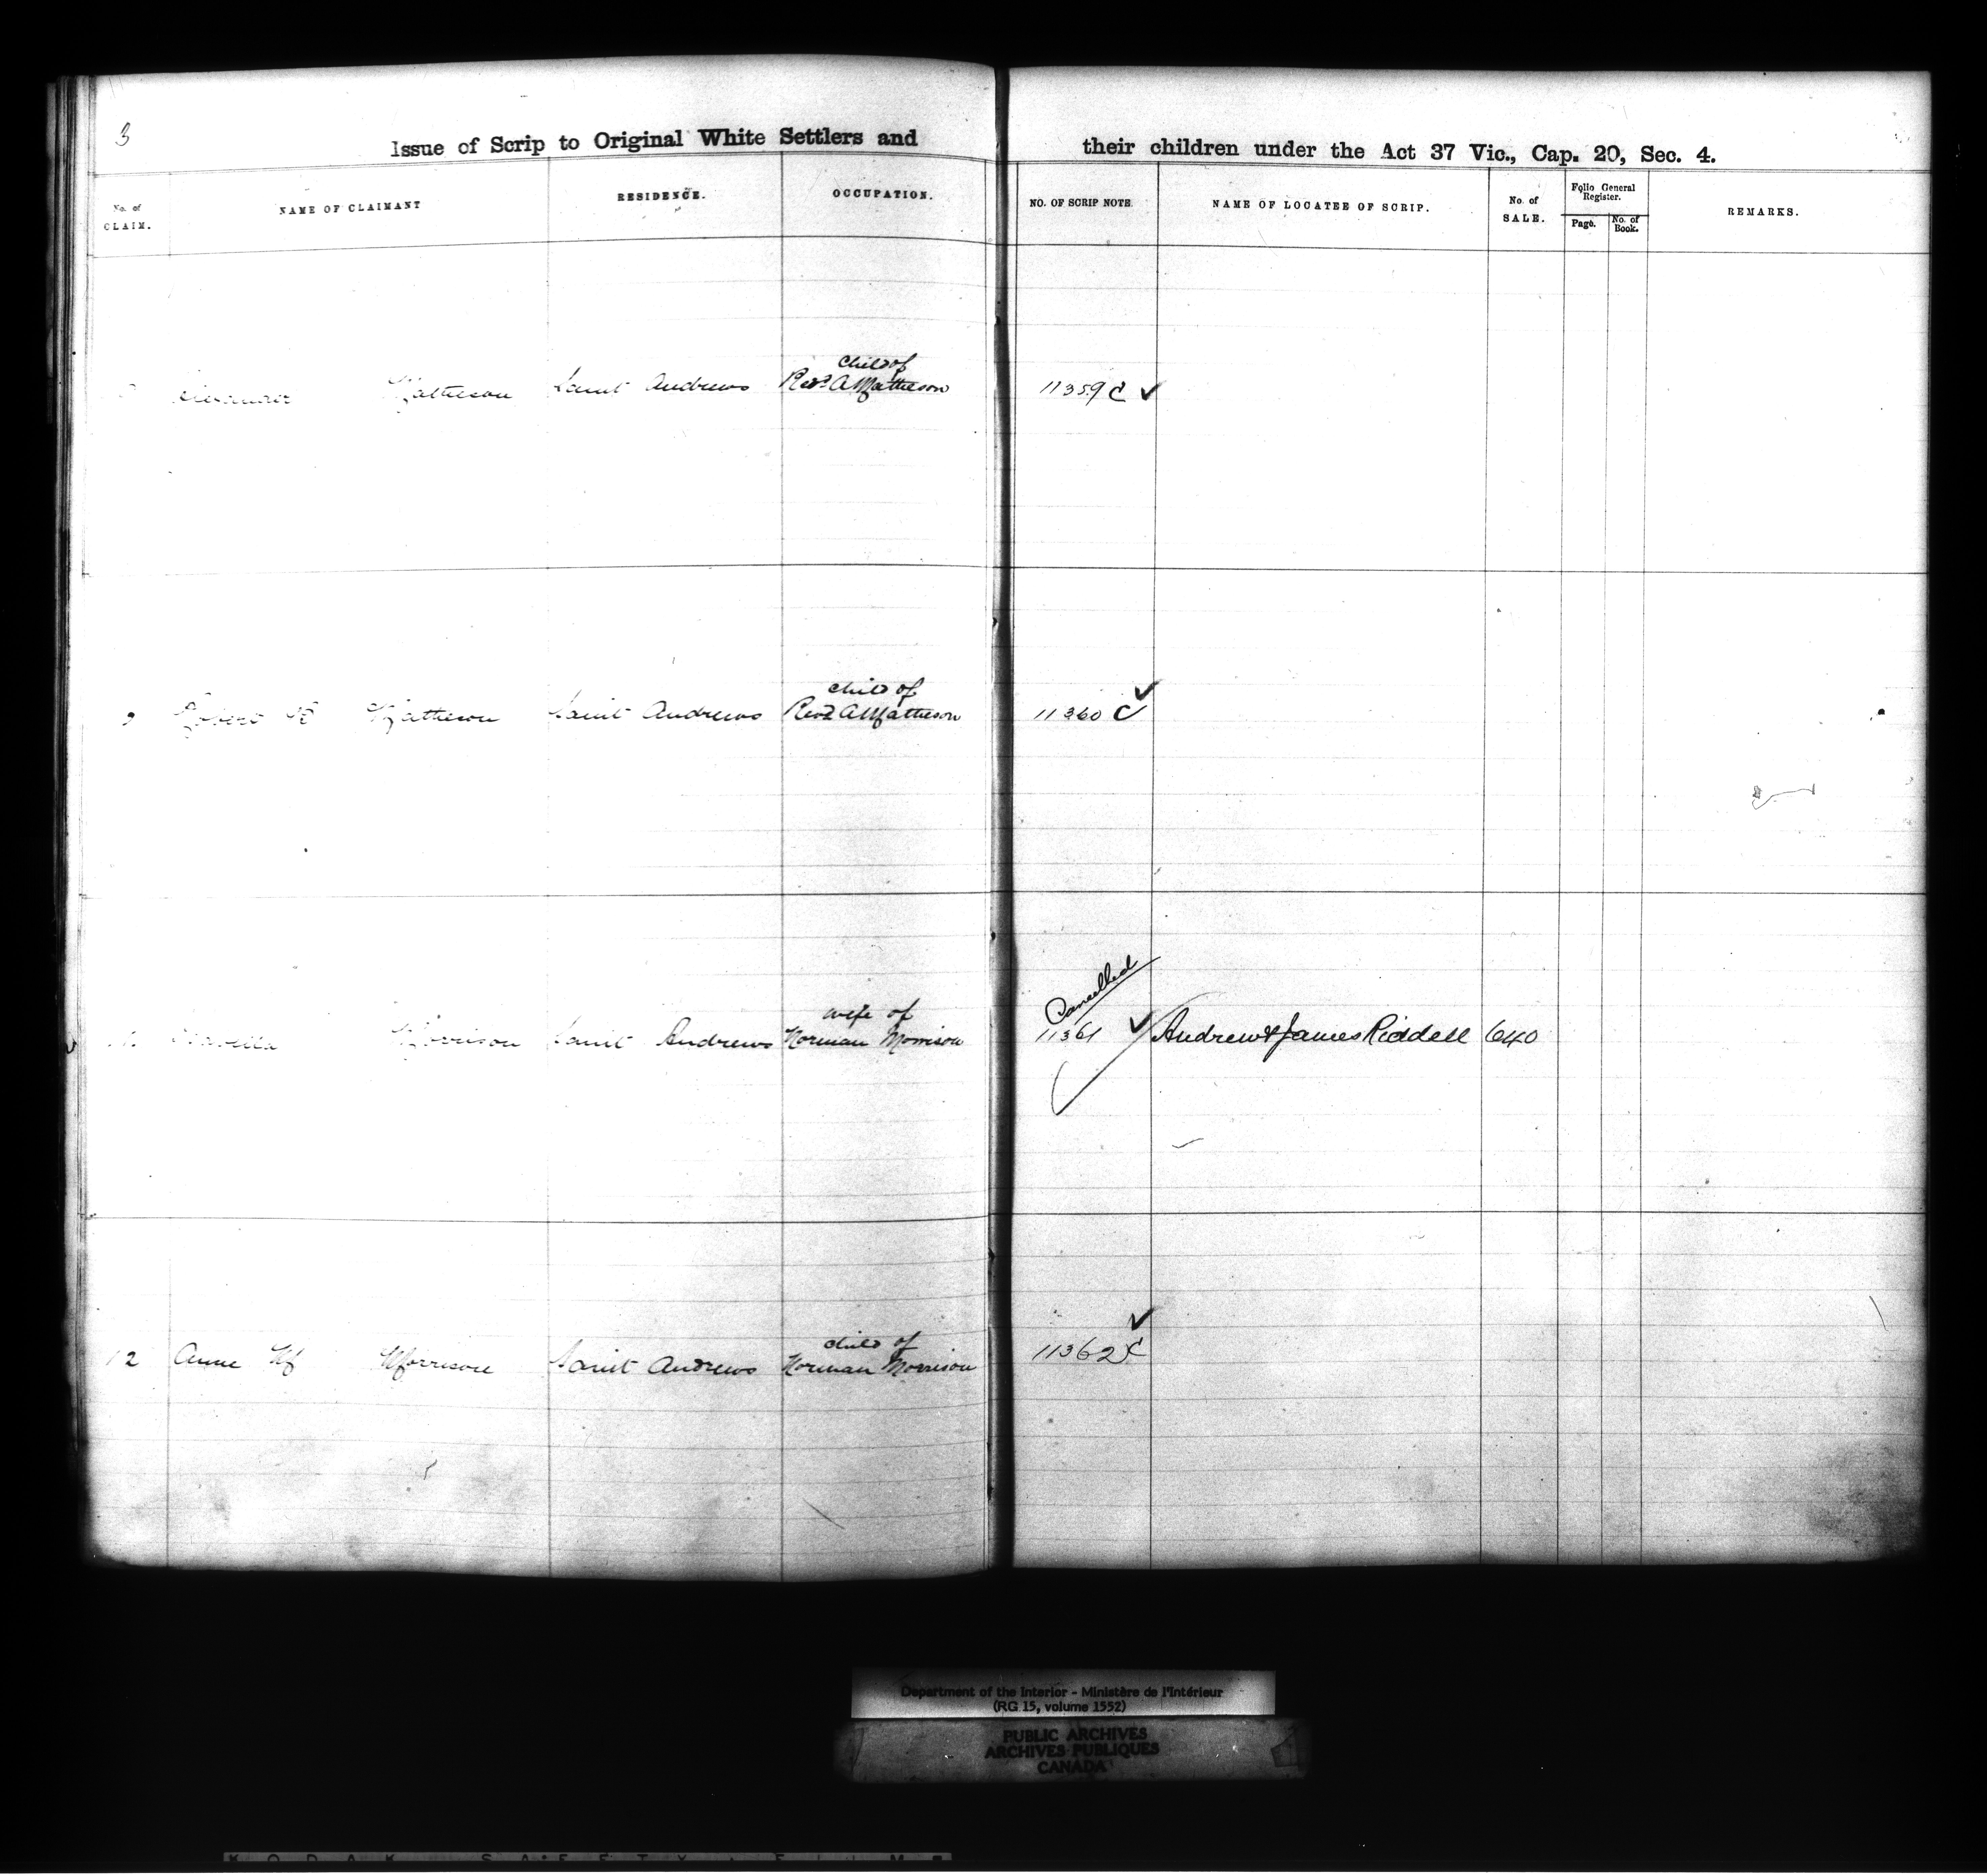 3
Issue of Scrip to Original White Settlers and their children under the Act 37 Vic., Cap. 20, Sec. 4.
No. of CLAIM. NAME OF CLAIMANT RESIDENCE. OCCUPATION. NO. OF SCRIP NOTE. NAME OF LOCATEE OF SCRIP. No. of SALE. Folio General Register. Page. No. of Book. REMARKS.
child of
Matheson Saint Andrews Revd A Matheson 11359 C ✓
child of
Robert Matheson Saint Andrews Revd A Matheson 11360 C ✓
Cancelled
wife of
Morrison Saint Andrews Norman Morrison 11361 ✓ Andrew & James Riddell 640
child of
12 Anne Morrison Saint Andrews Norman Morrison 11362 C ✓
Department of the Interior - Ministère de l'Intérieur
(RG 15, volume 1552)
PUBLIC ARCHIVES
ARCHIVES PUBLIQUES
CANADA
KODAK SAFETY FILM